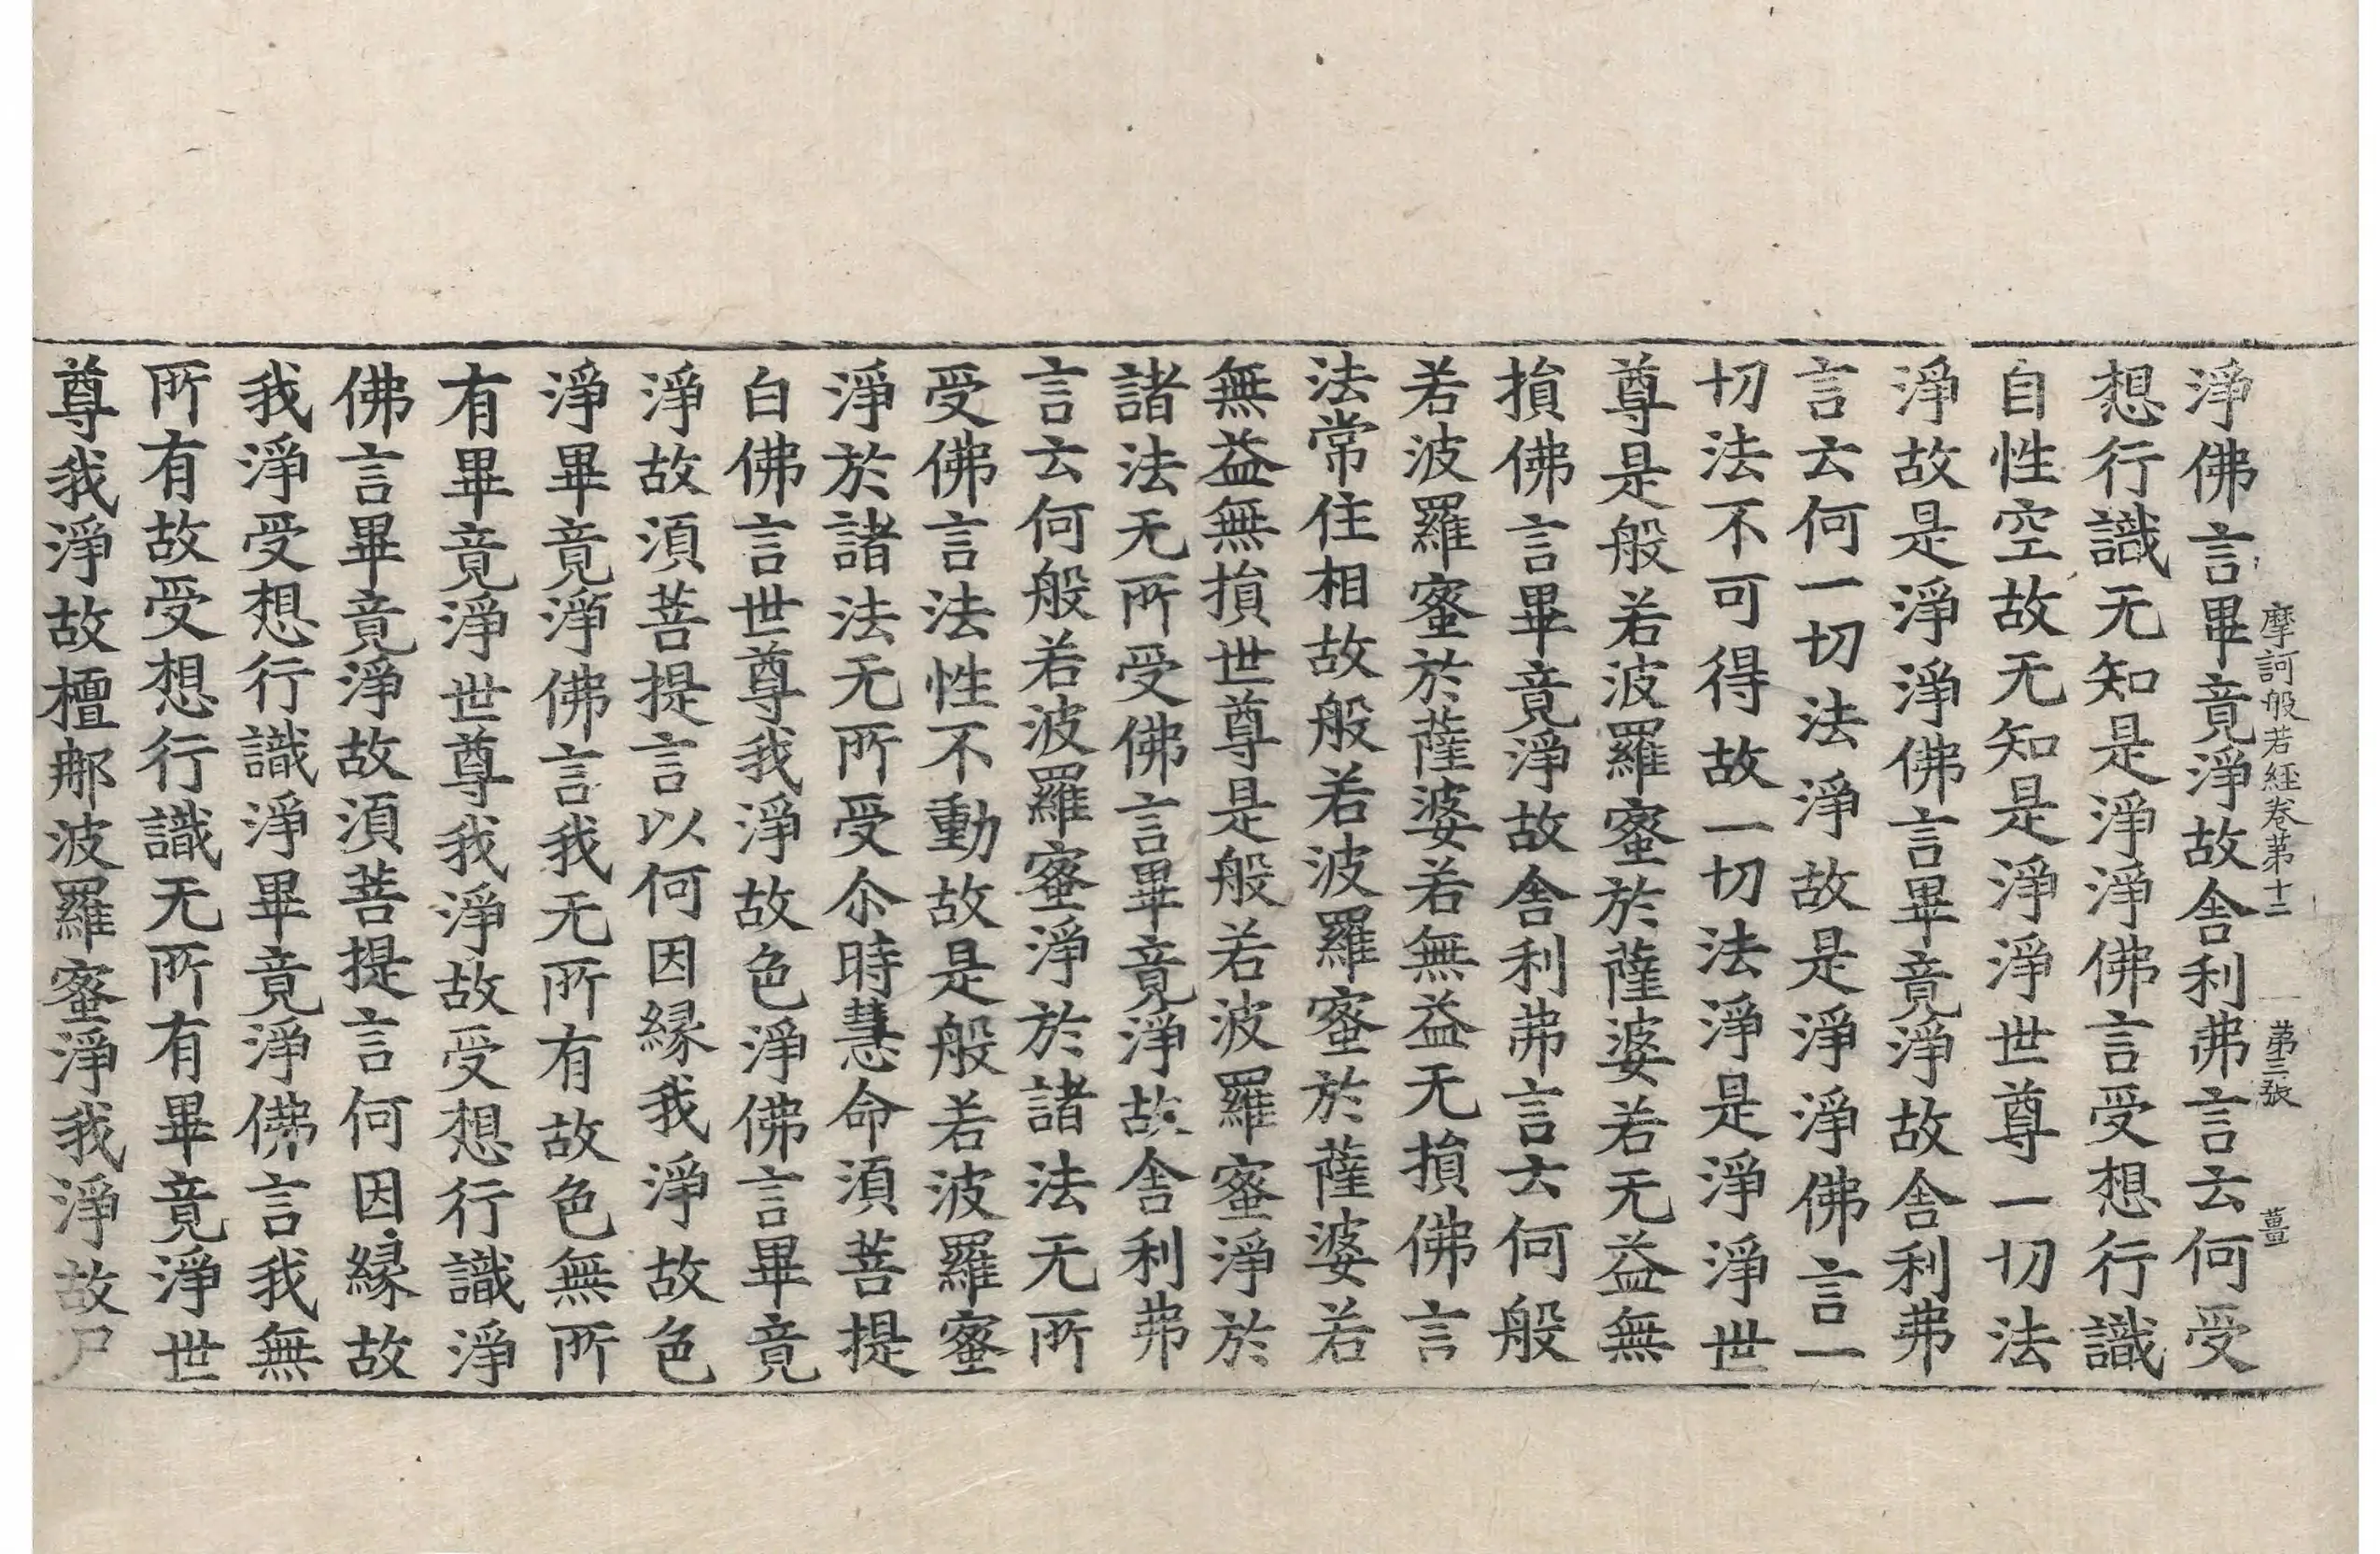 摩訶般若經卷第十二　第三張　薑
淨佛言畢竟淨故舎利弗言云何受
想行識无知是淨淨佛言受想行識
自性空故无知是淨淨世尊一切法
淨故是淨淨佛言畢竟淨故舎利弗
言云何一切法淨故是淨淨佛言一
切法不可得故一切法淨是淨淨世
尊是般若波羅蜜於薩婆若无益無
損佛言畢竟淨故舎利弗言云何般
若波羅蜜於薩婆若無益无損佛言
法常住相故般若波羅蜜於薩婆若
無益無損世尊是般若波羅蜜淨於
諸法无所受佛言畢竟淨故舎利弗
言云何般若波羅蜜淨於諸法无所
受佛言法性不動故是般若波羅蜜
淨於諸法无所受尒時慧命湏菩提
白佛言世尊我淨故色淨佛言畢竟
淨故湏菩提言以何因縁我淨故色
淨畢竟淨佛言我无所有故色無所
有畢竟淨世尊我淨故受想行識淨
佛言畢竟淨故湏菩提言何因縁故
我淨受想行識淨畢竟淨佛言我無
所有故受想行識无所有畢竟淨世
尊我淨故檀那波羅蜜淨我淨故尸